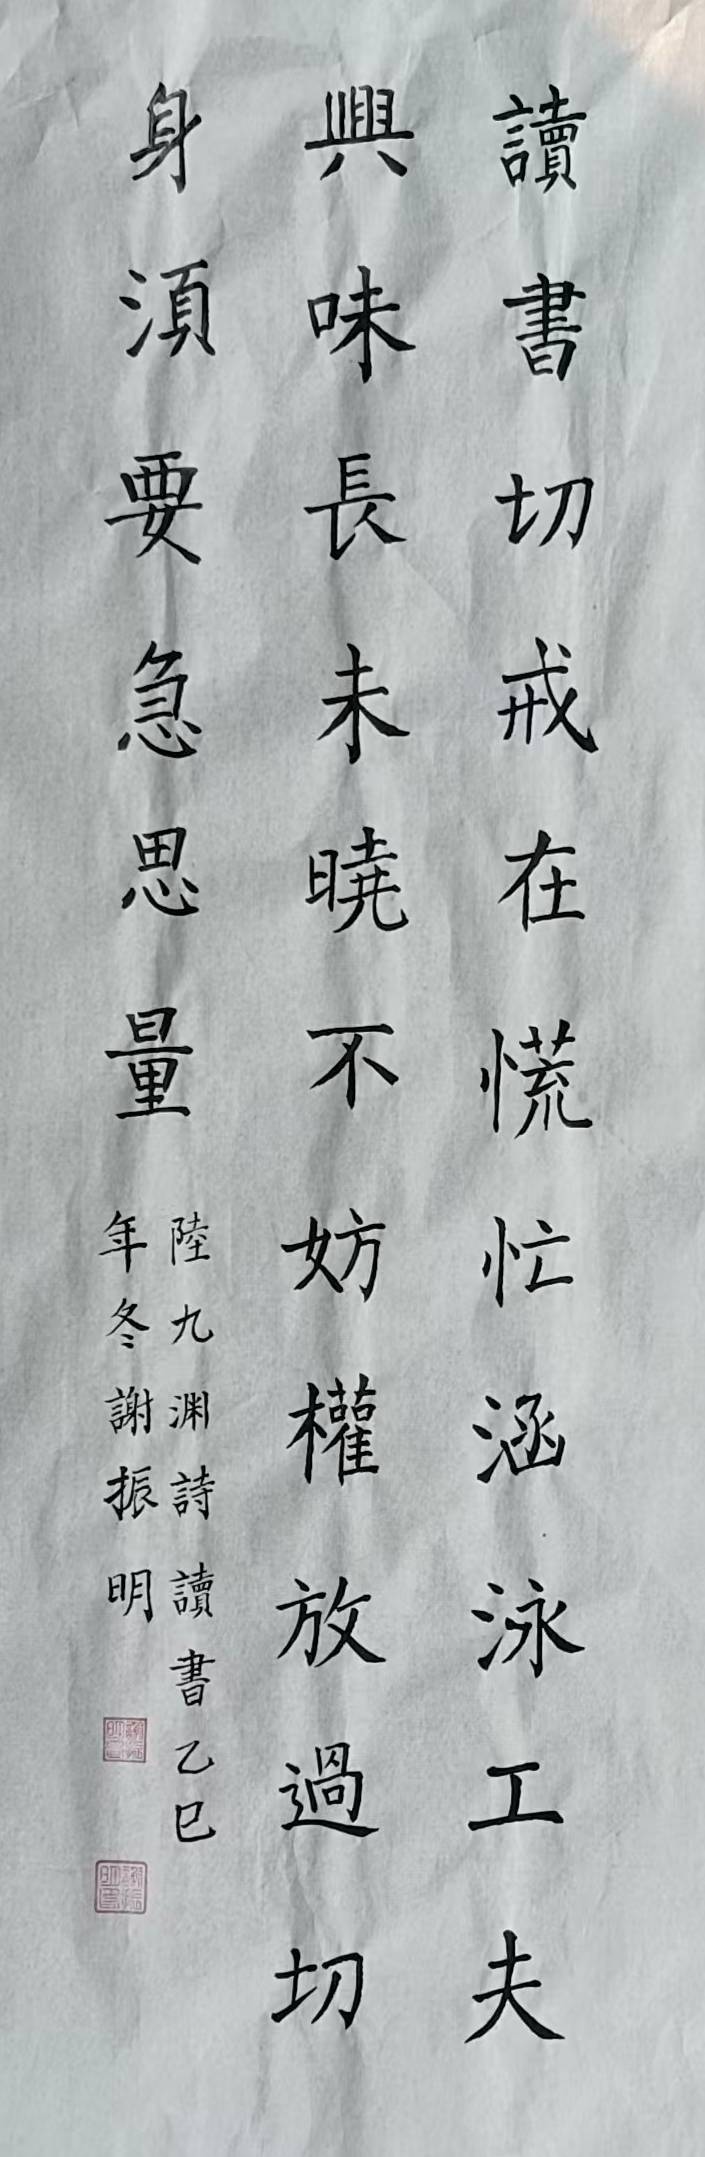 讀書切戒在慌忙涵泳工夫
興味長未曉不妨權放過切
身須要急思量
陸九渊詩讀書乙巳
年冬謝振明